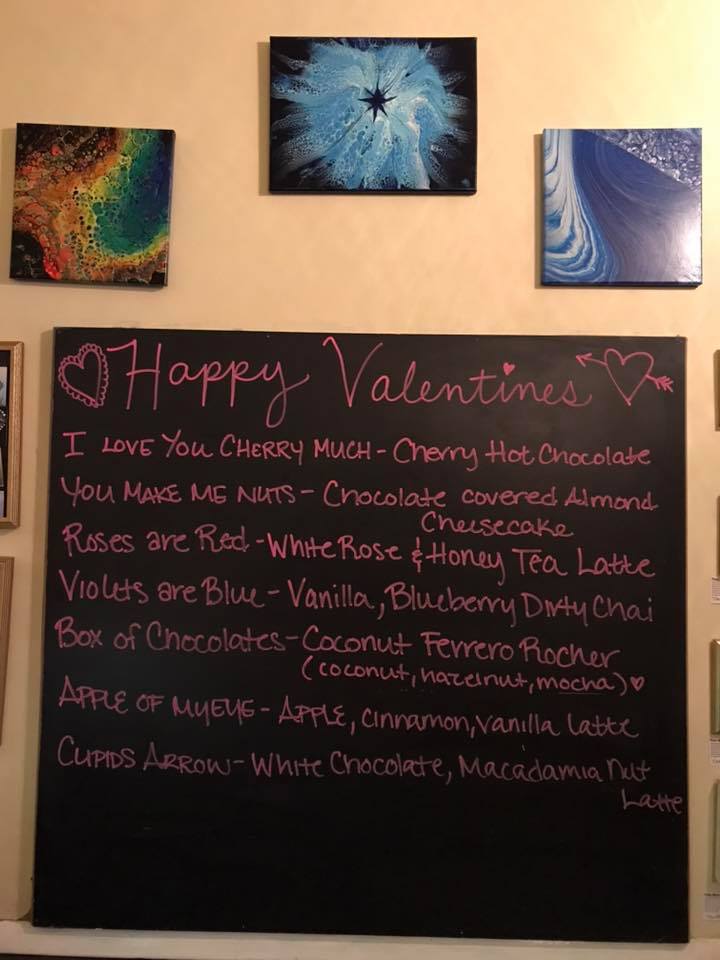 Happy Valentines
I LOVE YOU CHERRY MUCH - Cherry Hot Chocolate
YOU MAKE ME NUTS - Chocolate covered Almond
Cheesecake
Roses are Red - White Rose & Honey Tea Latte
Violets are Blue - Vanilla, Blueberry Dirty Chai
Box of Chocolates - Coconut Ferrero Rocher
(coconut, hazelnut, mocha)
APPLE OF MY EYE - APPLE, cinnamon, vanilla latte
CUPIDS ARROW - White Chocolate, Macadamia Nut
Latte